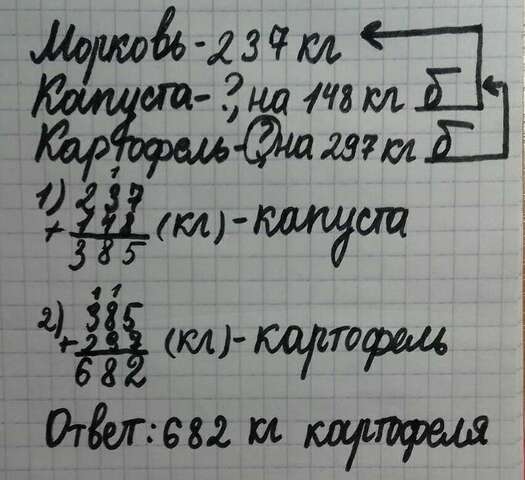 Морковь - 237 кг
Капуста - ?, на 148 кг б
Картофель - ? на 297 кг б
1) 237
+ 148 (кг) - капуста
385
2) 385
+ 297 (кг) - картофель
682
Ответ: 682 кг картофеля